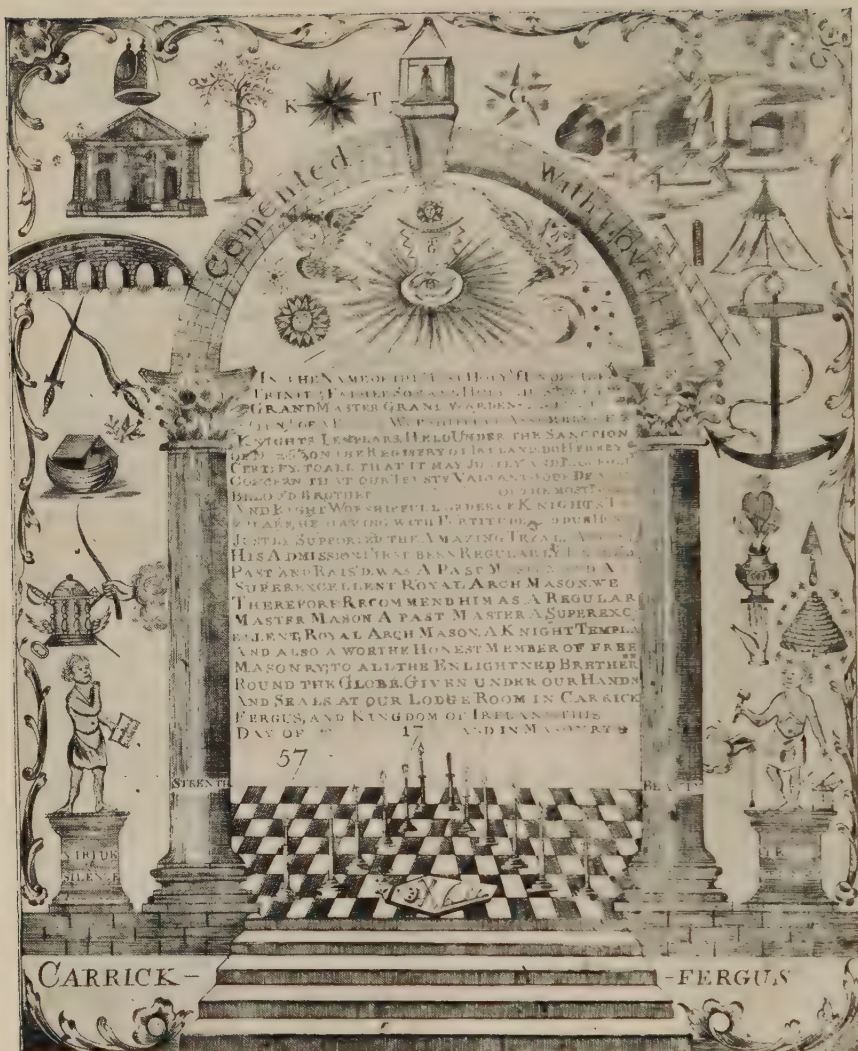 K T
G
Cemented With Love
G
IN THE NAME OF THE HOLY
TRINITY FATHER SON AND HOLY
GRAND MASTER GRAND WARDEN
OF A
KNIGHTS TEMPLARS, HELD UNDER THE SANCTION
ON THE REGISTRY OF IRELAND. DO HEREBY
CERTIFY. TO ALL THAT IT MAY JUSTLY AND
CONCERN THAT OUR TRUSTY VALIANT
BELOV'D BROTHER OF THE MOST
AND RIGHT WORSHIPFULL ORDER OF KNIGHTS T
HE HAVING WITH FORTITUDE
JUSTLY SUPPORTED THE AMAZING TRYAL
HIS ADMISSION FIRST BEEN REGULARLY
PAST AND RAIS'D. WAS A PAST A
SUPEREXCELLENT ROYAL ARCH MASON. WE
THEREFORE RECOMMEND HIM AS A REGULAR
MASTER MASON A PAST MASTER A SUPEREXC
ELLENT, ROYAL ARCH MASON, A KNIGHT TEMPLA
AND ALSO A WORTHE HONEST MEMBER OF FREE
MASONRY, TO ALL THE ENLIGHTNED BRETHER
ROUND THE GLOBE. GIVEN UNDER OUR HANDS
AND SEALS AT OUR LODGE ROOM IN CARRICK
FERGUS, AND KINGDOM OF IRELAND THIS
DAY OF 17 AND IN MASONRY
57
STRENTH
VIRTUE
SILENCE
CARRICK- -FERGUS